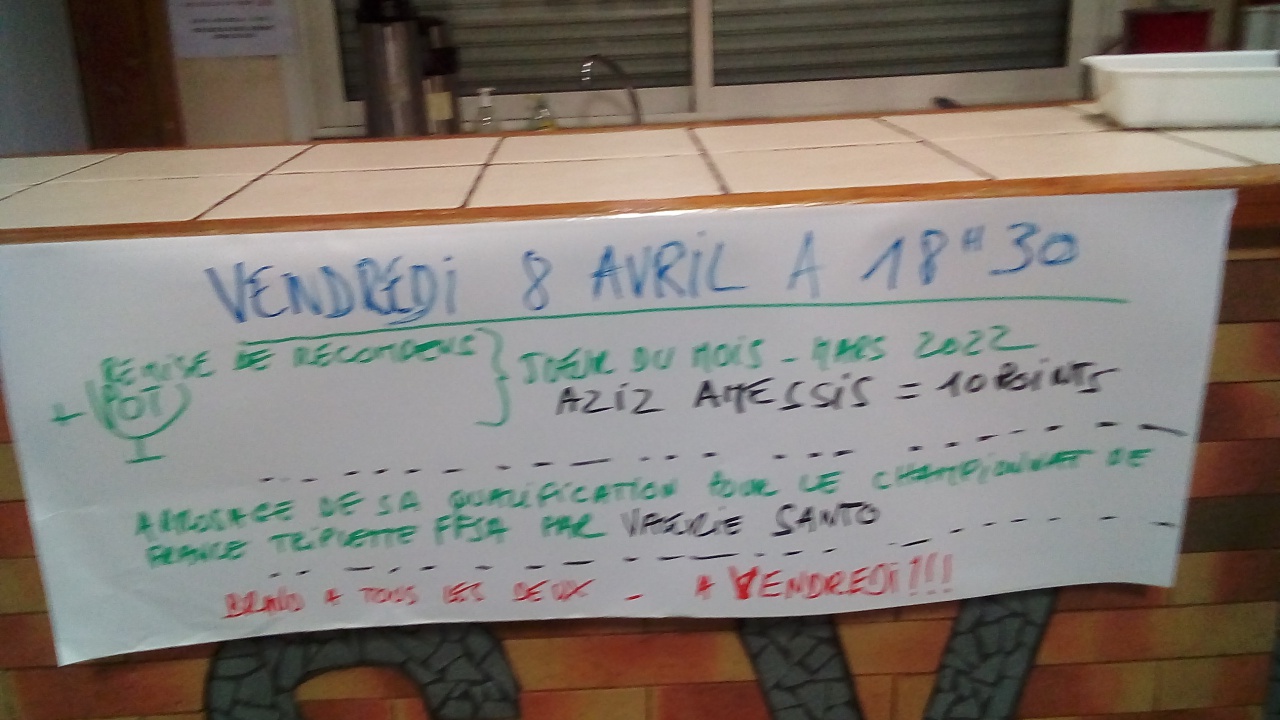 VENDREDI 8 AVRIL A 18 H 30
REMISE DE RECOMPENS } JOEUR DU MOIS - MARS 2022
+ POT
AZIZ AMESSIS = 10 POINTS
ARROSAGE DE SA QUALIFICATION POUR LE CHAMPIONNAT DE
FRANCE TRIPLETTE FFSA PAR VALERIE SANTO
BRAVO A TOUS LES DEUX - A VENDREDI !!!